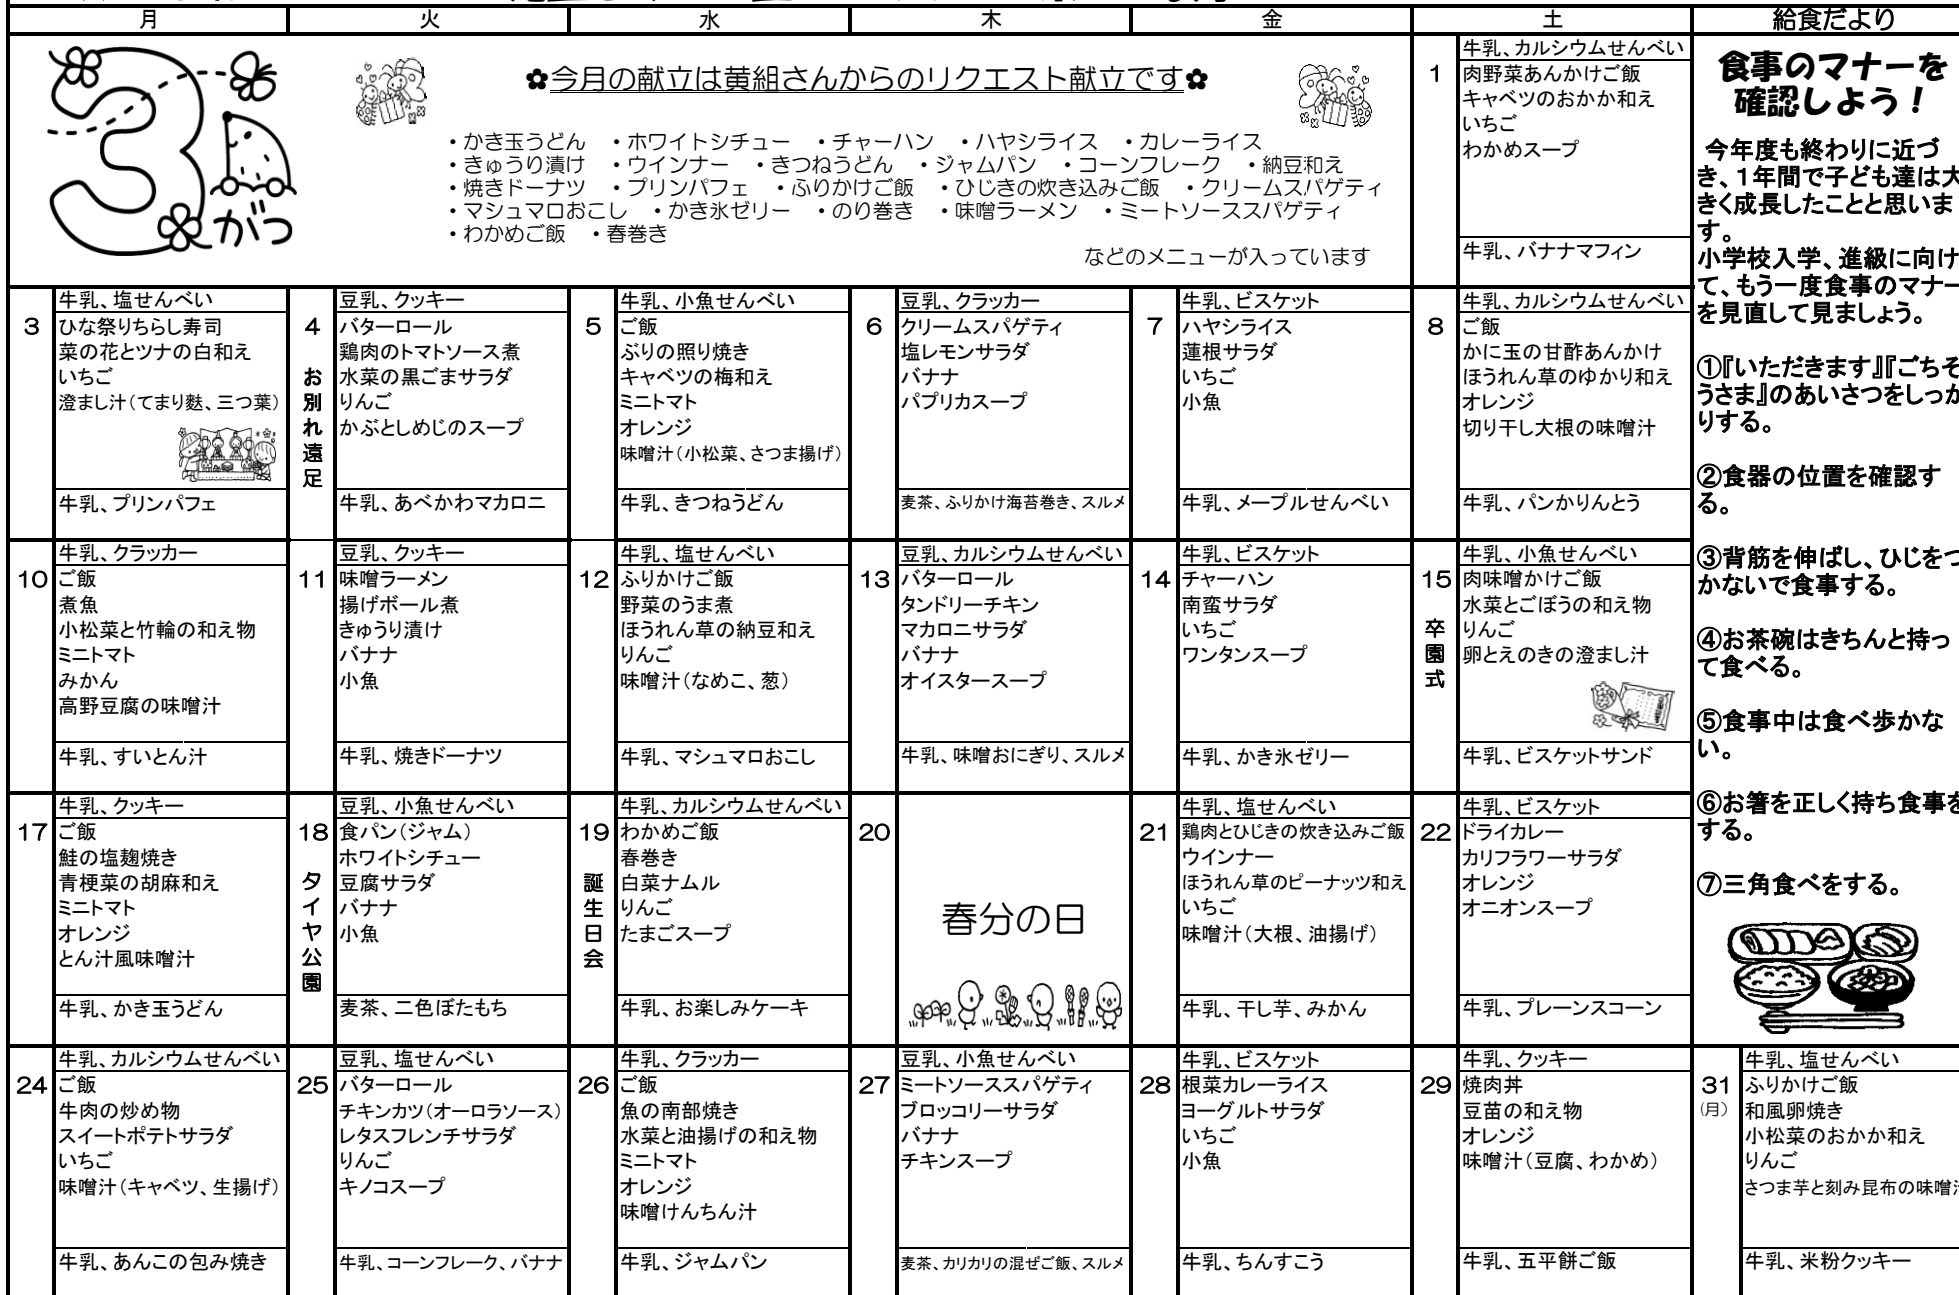 月
火
水
木
金
土
給食だより
3
がつ
✿今月の献立は黄組さんからのリクエスト献立です✿
・かき玉うどん ・ホワイトシチュー ・チャーハン ・ハヤシライス ・カレーライス
・きゅうり漬け ・ウインナー ・きつねうどん ・ジャムパン ・コーンフレーク ・納豆和え
・焼きドーナツ ・プリンパフェ ・ふりかけご飯 ・ひじきの炊き込みご飯 ・クリームスパゲティ
・マシュマロおこし ・かき氷ゼリー ・のり巻き ・味噌ラーメン ・ミートソーススパゲティ
・わかめご飯 ・春巻き
などのメニューが入っています
1
牛乳、カルシウムせんべい
肉野菜あんかけご飯
キャベツのおかか和え
いちご
わかめスープ
牛乳、バナナマフィン
3
牛乳、塩せんべい
ひな祭りちらし寿司
菜の花とツナの白和え
いちご
澄まし汁（てまり麩、三つ葉）
牛乳、プリンパフェ
4
お別れ遠足
豆乳、クッキー
バターロール
鶏肉のトマトソース煮
水菜の黒ごまサラダ
りんご
かぶとしめじのスープ
牛乳、あべかわマカロニ
5
牛乳、小魚せんべい
ご飯
ぶりの照り焼き
キャベツの梅和え
ミニトマト
オレンジ
味噌汁（小松菜、さつま揚げ）
牛乳、きつねうどん
6
豆乳、クラッカー
クリームスパゲティ
塩レモンサラダ
バナナ
パプリカスープ
麦茶、ふりかけ海苔巻き、スルメ
7
牛乳、ビスケット
ハヤシライス
蓮根サラダ
いちご
小魚
牛乳、メープルせんべい
8
牛乳、カルシウムせんべい
ご飯
かに玉の甘酢あんかけ
ほうれん草のゆかり和え
オレンジ
切り干し大根の味噌汁
牛乳、パンかりんとう
10
牛乳、クラッカー
ご飯
煮魚
小松菜と竹輪の和え物
ミニトマト
みかん
高野豆腐の味噌汁
牛乳、すいとん汁
11
豆乳、クッキー
味噌ラーメン
揚げボール煮
きゅうり漬け
バナナ
小魚
牛乳、焼きドーナツ
12
牛乳、塩せんべい
ふりかけご飯
野菜のうま煮
ほうれん草の納豆和え
りんご
味噌汁（なめこ、葱）
牛乳、マシュマロおこし
13
豆乳、カルシウムせんべい
バターロール
タンドリーチキン
マカロニサラダ
バナナ
オイスタースープ
牛乳、味噌おにぎり、スルメ
14
牛乳、ビスケット
チャーハン
南蛮サラダ
いちご
ワンタンスープ
牛乳、かき氷ゼリー
15
卒園式
牛乳、小魚せんべい
肉味噌かけご飯
水菜とごぼうの和え物
りんご
卵とえのきの澄まし汁
牛乳、ビスケットサンド
17
牛乳、クッキー
ご飯
鮭の塩麹焼き
青梗菜の胡麻和え
ミニトマト
オレンジ
とん汁風味噌汁
牛乳、かき玉うどん
18
タイヤ公園
豆乳、小魚せんべい
食パン（ジャム）
ホワイトシチュー
豆腐サラダ
バナナ
小魚
麦茶、二色ぼたもち
19
誕生日会
牛乳、カルシウムせんべい
わかめご飯
春巻き
白菜ナムル
りんご
たまごスープ
牛乳、お楽しみケーキ
20
春分の日
21
牛乳、塩せんべい
鶏肉とひじきの炊き込みご飯
ウインナー
ほうれん草のピーナッツ和え
いちご
味噌汁（大根、油揚げ）
牛乳、干し芋、みかん
22
牛乳、ビスケット
ドライカレー
カリフラワーサラダ
オレンジ
オニオンスープ
牛乳、プレーンスコーン
24
牛乳、カルシウムせんべい
ご飯
牛肉の炒め物
スイートポテトサラダ
いちご
味噌汁（キャベツ、生揚げ）
牛乳、あんこの包み焼き
25
豆乳、塩せんべい
バターロール
チキンカツ（オーロラソース）
レタスフレンチサラダ
りんご
キノコスープ
牛乳、コーンフレーク、バナナ
26
牛乳、クラッカー
ご飯
魚の南部焼き
水菜と油揚げの和え物
ミニトマト
オレンジ
味噌けんちん汁
牛乳、ジャムパン
27
豆乳、小魚せんべい
ミートソーススパゲティ
ブロッコリーサラダ
バナナ
チキンスープ
麦茶、カリカリの混ぜご飯、スルメ
28
牛乳、ビスケット
根菜カレーライス
ヨーグルトサラダ
いちご
小魚
牛乳、ちんすこう
29
牛乳、クッキー
焼肉丼
豆苗の和え物
オレンジ
味噌汁（豆腐、わかめ）
牛乳、五平餅ご飯
31
（月）
牛乳、塩せんべい
ふりかけご飯
和風卵焼き
小松菜のおかか和え
りんご
さつま芋と刻み昆布の味噌汁
牛乳、米粉クッキー
食事のマナーを
確認しよう！
今年度も終わりに近づ
き、１年間で子ども達は大
きく成長したことと思いま
す。
小学校入学、進級に向け
て、もう一度食事のマナー
を見直して見ましょう。
①『いただきます』『ごちそ
うさま』のあいさつをしっか
りする。
②食器の位置を確認す
る。
③背筋を伸ばし、ひじをつ
かないで食事する。
④お茶碗はきちんと持っ
て食べる。
⑤食事中は食べ歩かな
い。
⑥お箸を正しく持ち食事を
する。
⑦三角食べをする。